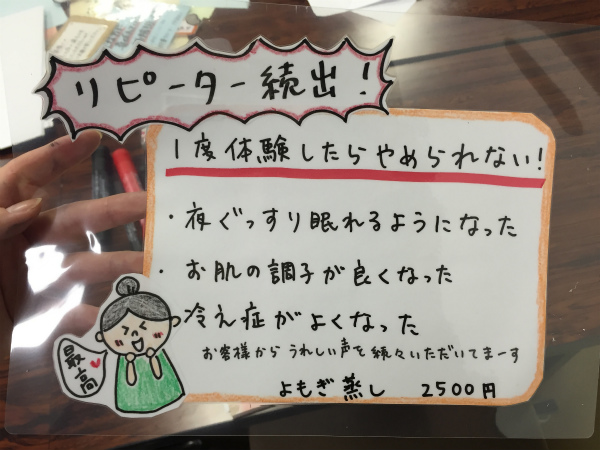 リピーター続出!
1度体験したらやめられない!
・夜ぐっすり眠れるようになった
・お肌の調子が良くなった
・冷え症がよくなった
お客様からうれしい声を続々いただいてまーす
最高
よもぎ蒸し 2500円